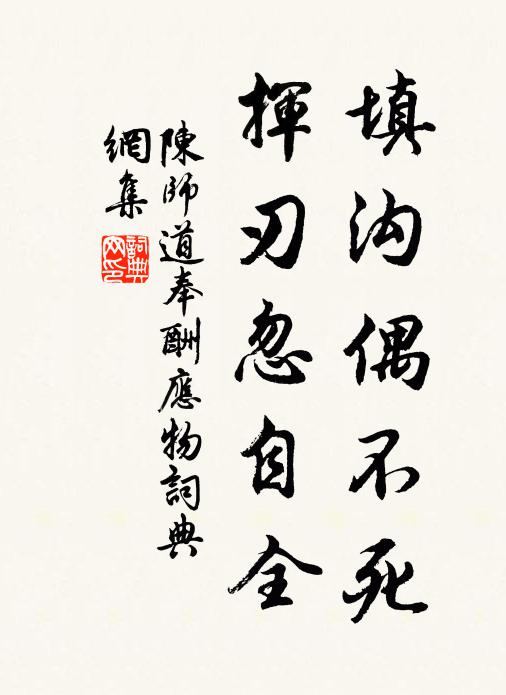 填沟偶不死
揮刃忽自全
陳師道奉酬應物詞典
網集
詞典
网印